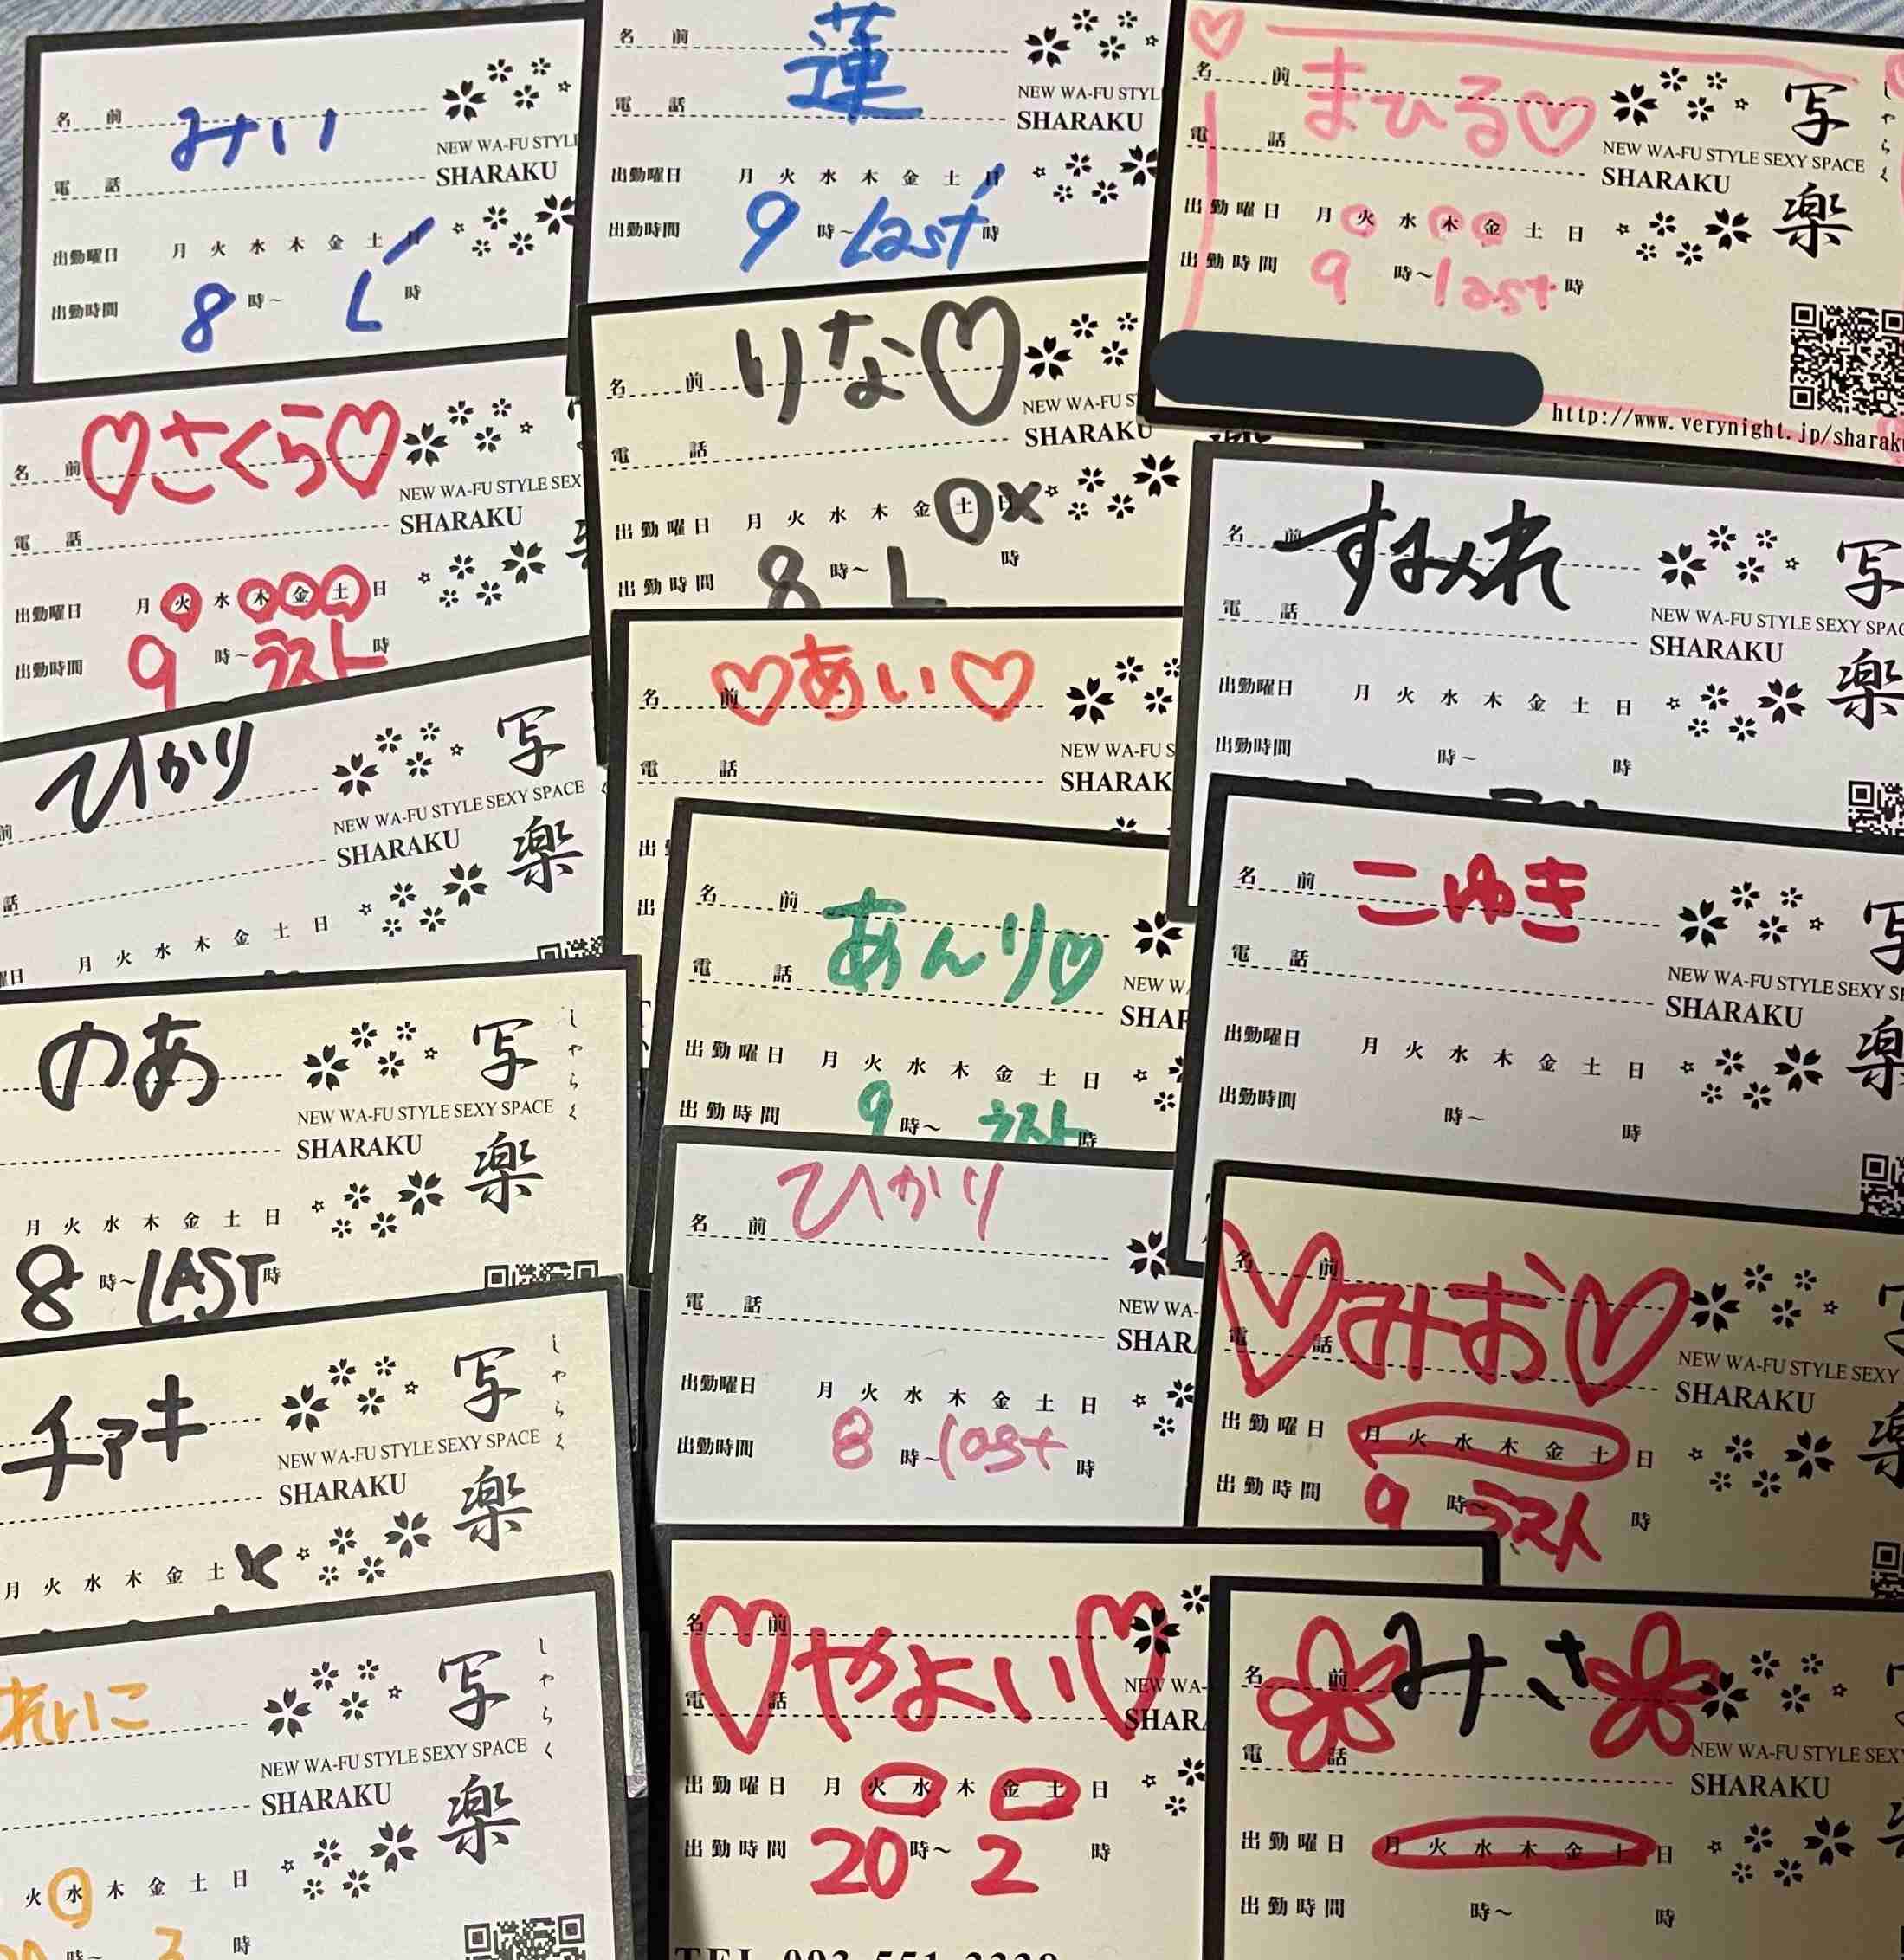 名前 みい
NEW WA-FU STYL
電話
SHARAKU
出勤曜日 月 火 水 木 金 土
出勤時間 8 時～ L 時
名前 蓮
NEW WA-FU STYL
電話
SHARAKU
出勤曜日 月 火 水 木 金 土 日
出勤時間 9 時～ Last 時
名前 まひる♡
写楽
しゃらく
電話
NEW WA-FU STYLE SEXY SPACE
SHARAKU
出勤曜日 月 火 水 木 金 土 日
出勤時間 9 時～ last 時
http://www.verynight.jp/sharak
名前 ♡さくら♡
NEW WA-FU STYLE SEX
電話
SHARAKU
出勤曜日 月 火 水 木 金 土 日
出勤時間 9 時～ ラスト 時
名前 りな♡
NEW WA-FU S
電話
SHARAKU
出勤曜日 月 火 水 木 金 土 日 ×
出勤時間 8 時～ L 時
名前 すみれ
写楽
電話
NEW WA-FU STYLE SEXY SPAC
SHARAKU
出勤曜日 月 火 水 木 金 土 日
出勤時間 時～ 時
前 ひかり
写楽
NEW WA-FU STYLE SEXY SPACE
話
SHARAKU
曜日 月 火 水 木 金 土 日
名前 ♡あい♡
NEW WA-FU S
電話
SHARAK
出
出
名前 あんり♡
NEW W
電話
SHAR
出勤曜日 月 火 水 木 金 土 日
出勤時間 9 時～ ラスト 時
名前 こゆき
写楽
電話
NEW WA-FU STYLE SEXY S
SHARAKU
出勤曜日 月 火 水 木 金 土 日
出勤時間 時～ 時
のあ
写楽
しゃらく
NEW WA-FU STYLE SEXY SPACE
SHARAKU
月 火 水 木 金 土 日
8 時～ LAST 時
名前 ひかり
電話
NEW WA-
SHAR
出勤曜日 月 火 水 木 金 土 日
出勤時間 8 時～ last 時
名前 ♡みお♡
電話
NEW WA-FU STYLE SEXY
SHARAKU
出勤曜日 月 火 水 木 金 土 日
出勤時間 9 時～ ラスト 時
チアキ
写楽
しゃらく
NEW WA-FU STYLE SEXY SPACE
SHARAKU
月 火 水 木 金 土 ×
れいこ
写楽
しゃらく
NEW WA-FU STYLE SEXY SPACE
SHARAKU
火 水 木 金 土 日
時～ 時
名前 ♡やよい♡
電話
NEW WA-
SHAR
出勤曜日 月 火 水 木 金 土 日
出勤時間 20 時～ 2 時
TEL 093-551-3338
名前 みさ
電話
NEW WA-FU STYLE SEX
SHARAKU
出勤曜日 月 火 水 木 金 土 日
出勤時間 時～ 時